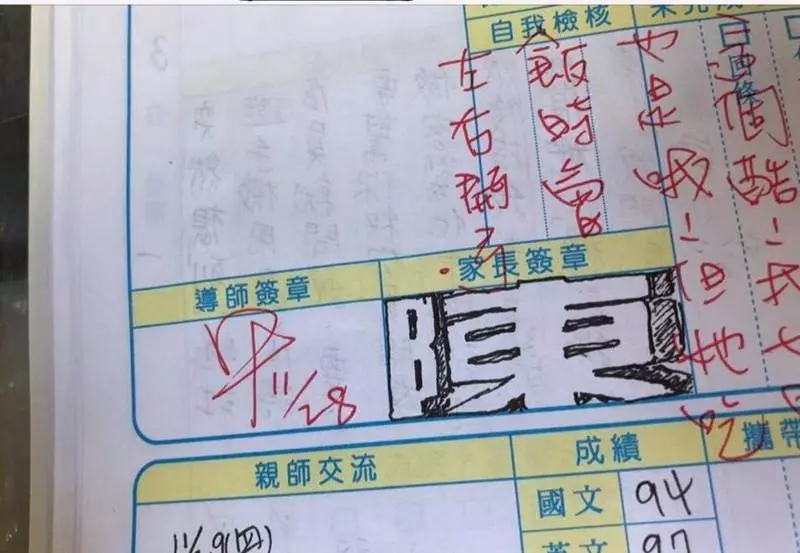 自我檢核
這個酷!我
也是哦!但她吃
飯時會
左右開弓.
導師簽章
家長簽章
11/28
親師交流
成績
攜帶
國文 94
英文 97